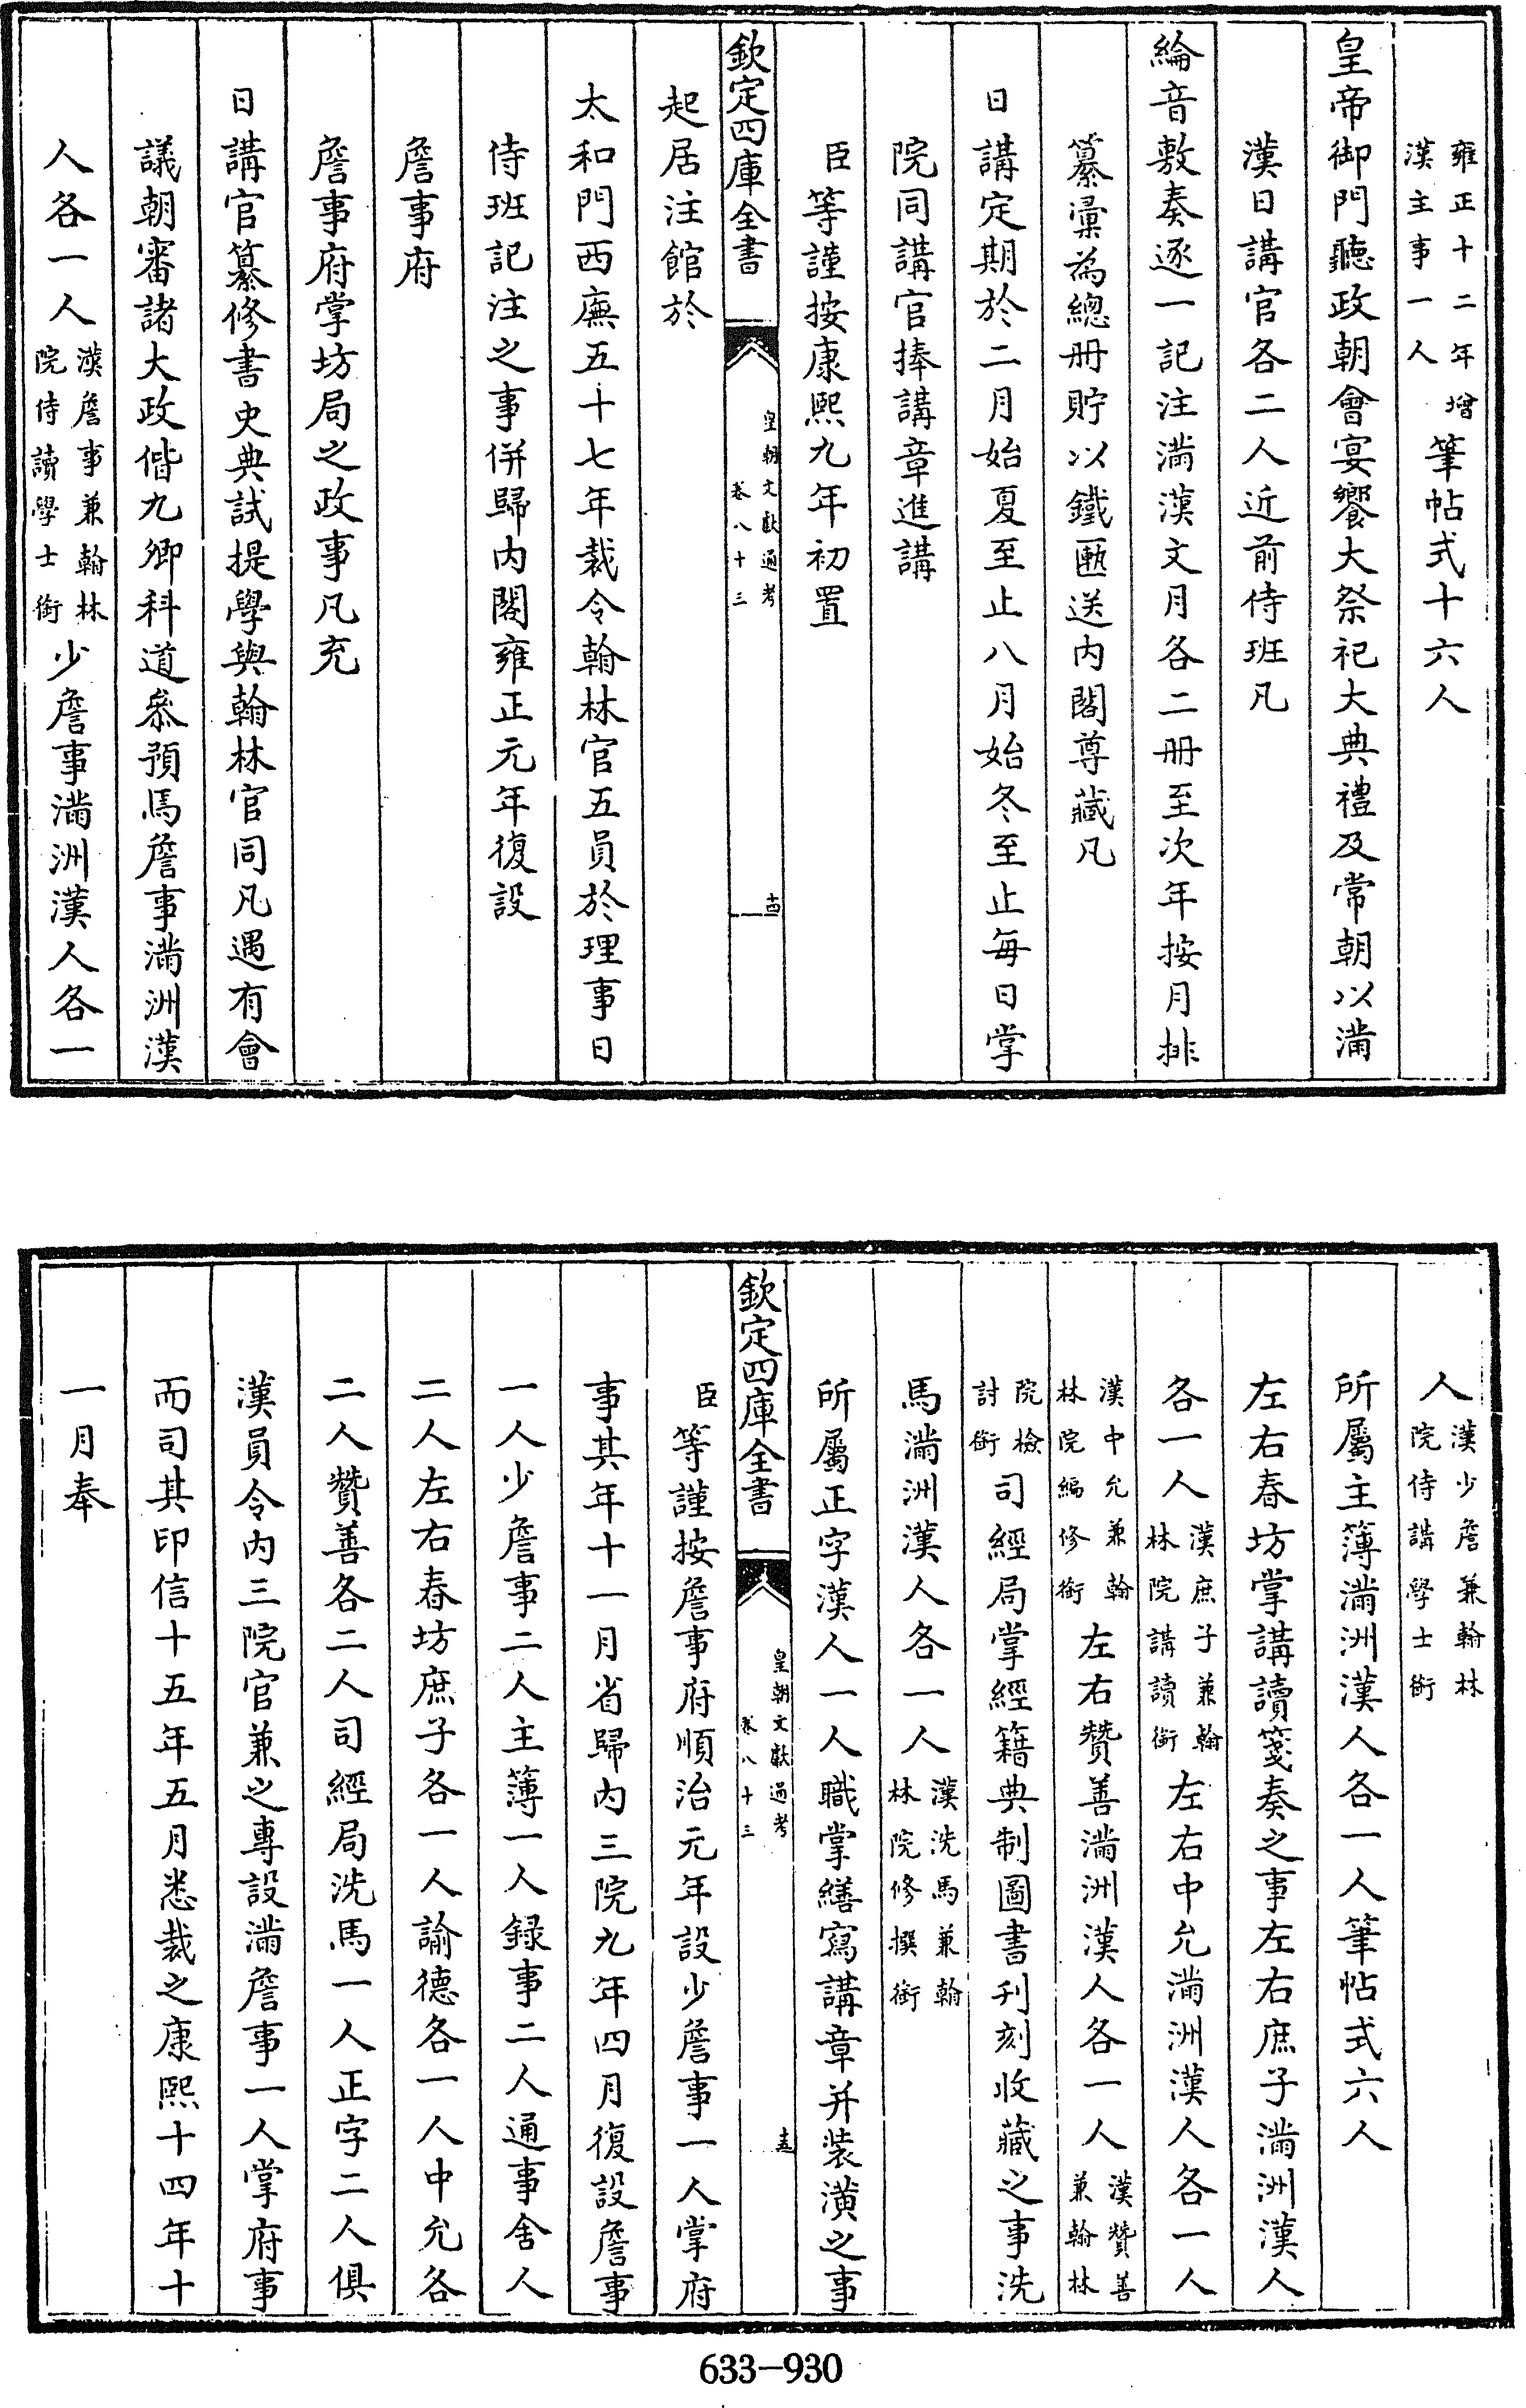 雍正十二年增漢主事一人筆帖式十六人
皇帝御門聽政朝會宴饗大祭祀大典禮及常朝以滿
漢日講官各二人近前侍班凡
綸音敷奏逐一記注滿漢文月各二冊至次年按月排
纂彙為總冊貯以鐵匭送内閣尊藏凡
日講定期於二月始夏至止八月始冬至止每日掌
院同講官捧講章進講
臣等謹按康熙九年初置
欽定四庫全書 皇朝文獻通考 卷八十三 十四
起居注館於
太和門西廡五十七年裁令翰林官五員於理事日
侍班記注之事併歸内閣雍正元年復設
詹事府
詹事府掌坊局之政事凡充
日講官纂修書史典試提學與翰林官同凡遇有會
議朝審諸大政偕九卿科道叅預焉詹事滿洲漢
人各一人漢詹事兼翰林院侍讀學士銜少詹事滿洲漢人各一
人漢少詹兼翰林院侍講學士銜
所屬主簿滿洲漢人各一人筆帖式六人
左右春坊掌講讀箋奏之事左右庶子滿洲漢人
各一人漢庶子兼翰林院講讀銜左右中允滿洲漢人各一人
漢中允兼翰林院編修銜左右贊善滿洲漢人各一人漢贊善兼翰林
院檢討銜司經局掌經籍典制圖書刋刻收藏之事洗
馬滿洲漢人各一人漢洗馬兼翰林院修撰銜
所屬正字漢人一人職掌繕寫講章并装潢之事
欽定四庫全書 皇朝文獻通考 卷八十三 十五
臣等謹按詹事府順治元年設少詹事一人掌府
事其年十一月省歸内三院九年四月復設詹事
一人少詹事二人主簿一人録事二人通事舍人
二人左右春坊庶子各一人諭德各一人中允各
二人贊善各二人司經局洗馬一人正字二人俱
漢員令内三院官兼之專設滿詹事一人掌府事
而司其印信十五年五月悉裁之康熙十四年十
一月奉
633-930